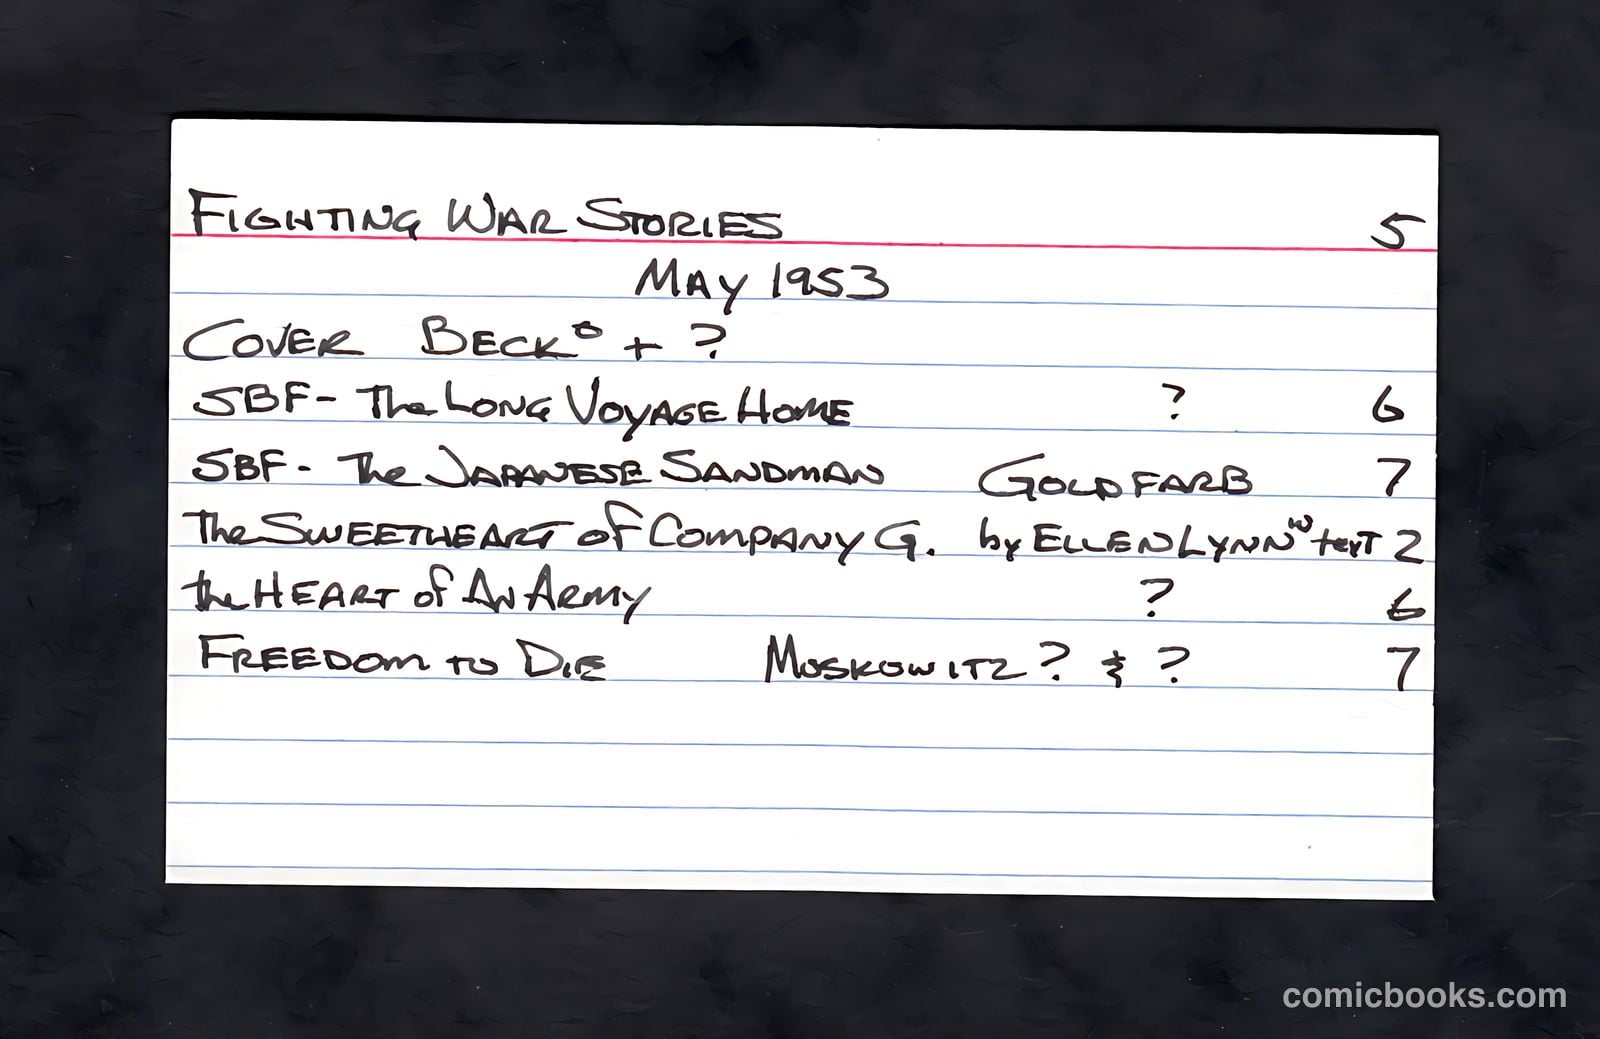 FIGHTING WAR STORIES 5
MAY 1953
COVER BECK° + ?
SBF - The LONG VOYAGE HOME ? 6
SBF - The JAPANESE SANDMAN GOLDFARB 7
The SWEETHEART of COMPANY G. by ELLEN LYNN w text 2
the HEART of AN ARMY ? 6
FREEDOM TO DIE MOSKOWITZ? & ? 7
comicbooks.com